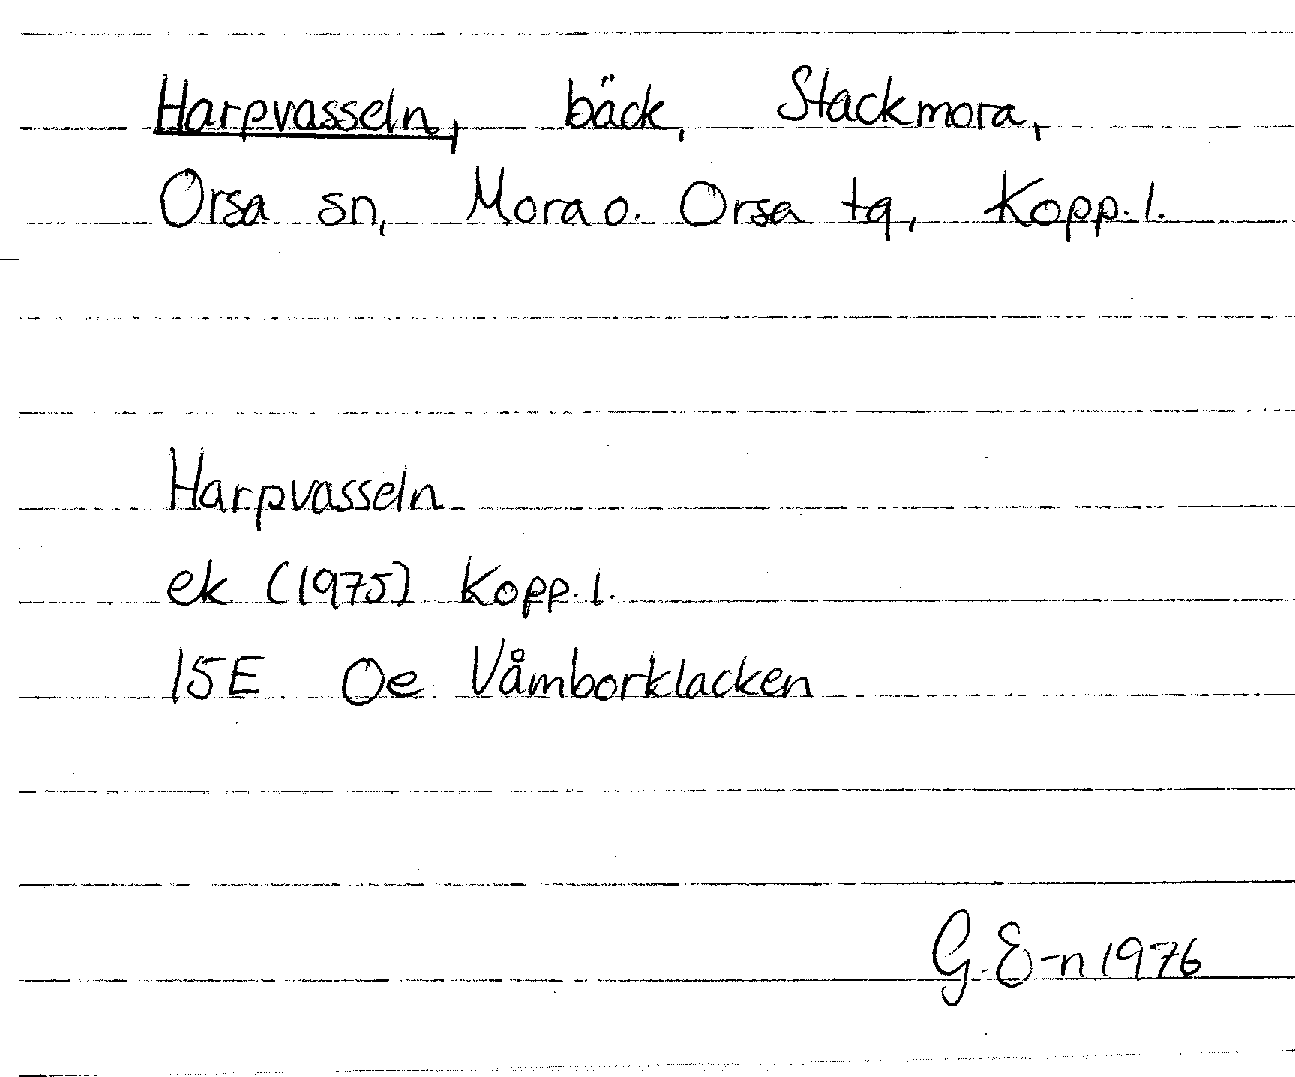 Harpvasseln, bäck, Stackmora,
Orsa sn, Mora o. Orsa tg, Kopp. l.
Harpvasseln
ek (1975) Kopp. l.
15E 0e Våmborklacken
G. E-n 1976